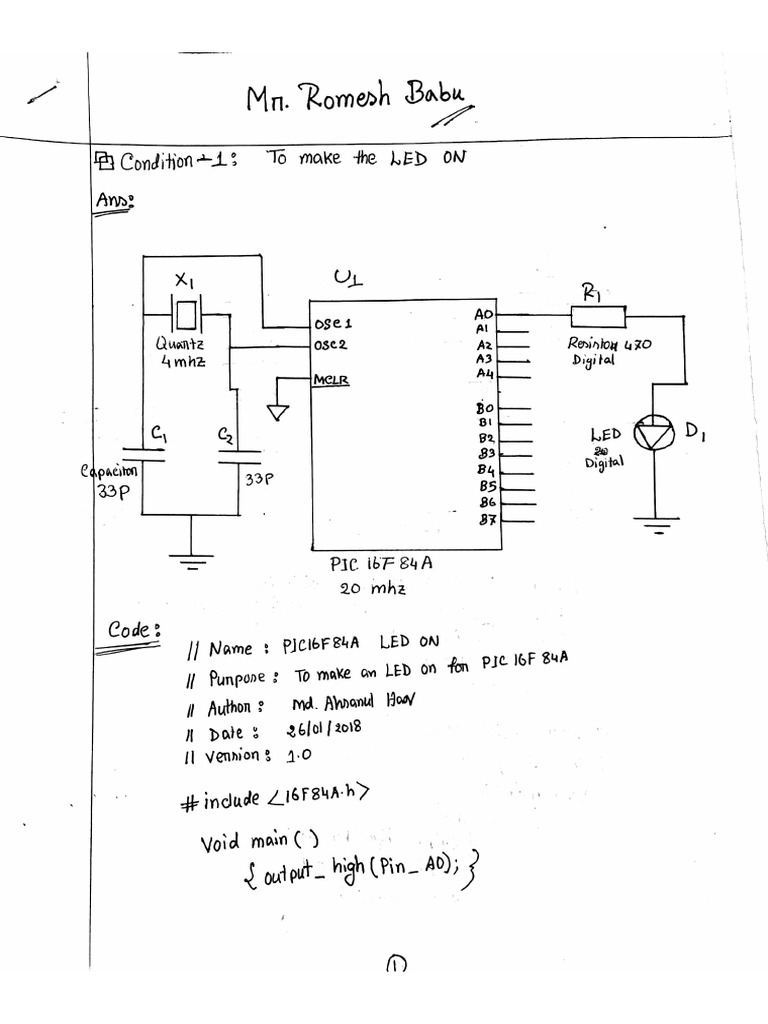 Mr. Romesh Babu
Condition-1: To make the LED ON
Ans:
X1
Quartz
4mhz
U1
OSC1
OSC2
MCLR
A0
A1
A2
A3
A4
B0
B1
B2
B3
B4
B5
B6
B7
R1
Resistor 470
Digital
LED
Digital
D1
C1
Capacitor
33P
C2
33P
PIC 16F84A
20 mhz
Code:
// Name: PIC16F84A LED ON
// Purpose: To make an LED on for PIC 16F84A
// Author: Md. Ahsanul
// Date: 26/01/2018
// Version: 1.0
#include <16F84A.h>
Void main()
{output_high(Pin_A0);}
1